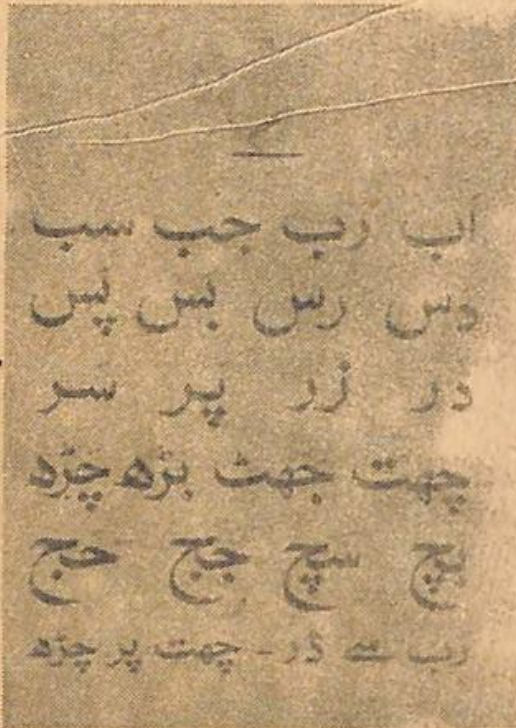 اب رب جب سب
دس رس بس پس
در زر پر سر
چھت جھٹ بڑھ چڑھ
سچ جج حج
رب سے ڈر - چھت پر چڑھ